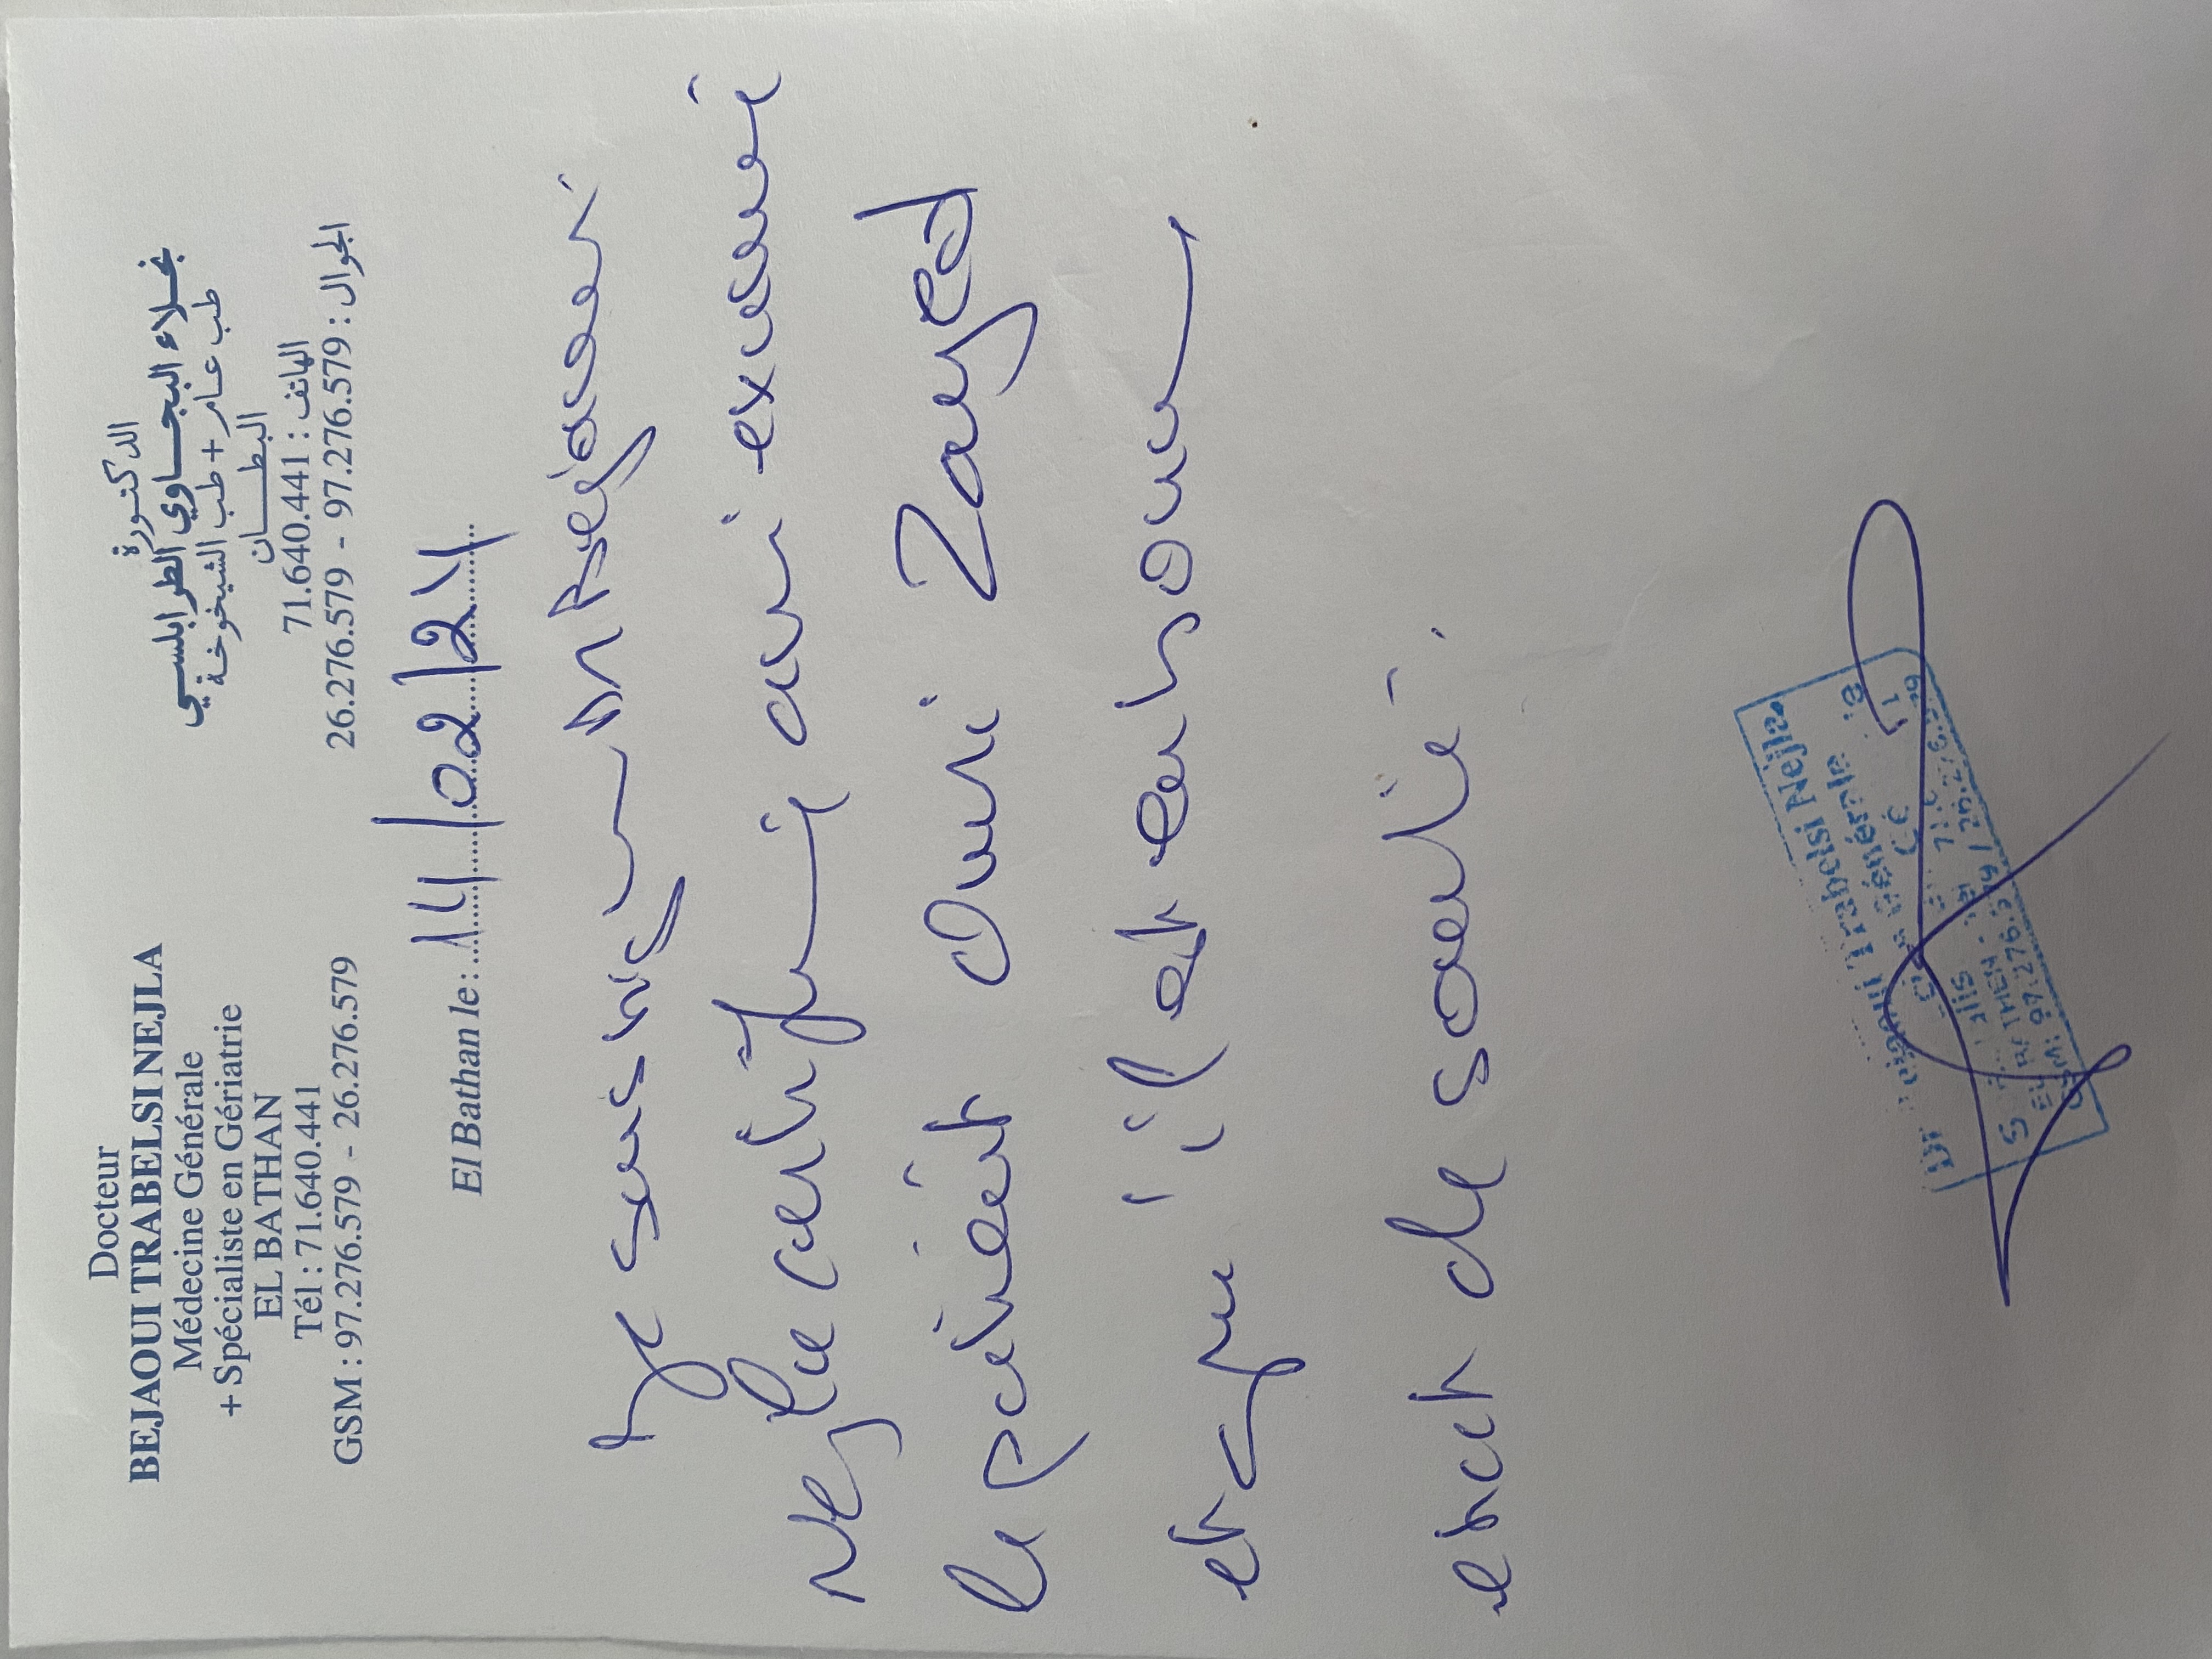 Docteur
BEJAOUI TRABELSI NEJLA
Médecine Générale
+ Spécialiste en Gériatrie
EL BATHAN
Tél : 71.640.441
GSM : 97.276.579 - 26.276.579
الدكتورة
نجلاء البجاوي الطرابلسي
طب عام + طب الشيخوخة
البطان
الهاتف : 71.640.441
الجوال : 97.276.579 - 26.276.579
El Bathan le : 14/02/21
Je soussigné Dr Bejaoui
Nejla certifie avoir examiné
le patient Ouni Zayed
et qu'il est en bonne
état de santé.
Dr Bejaoui Trabelsi Nejla
Générale
GSM: 97.276.579 / 26.276.579